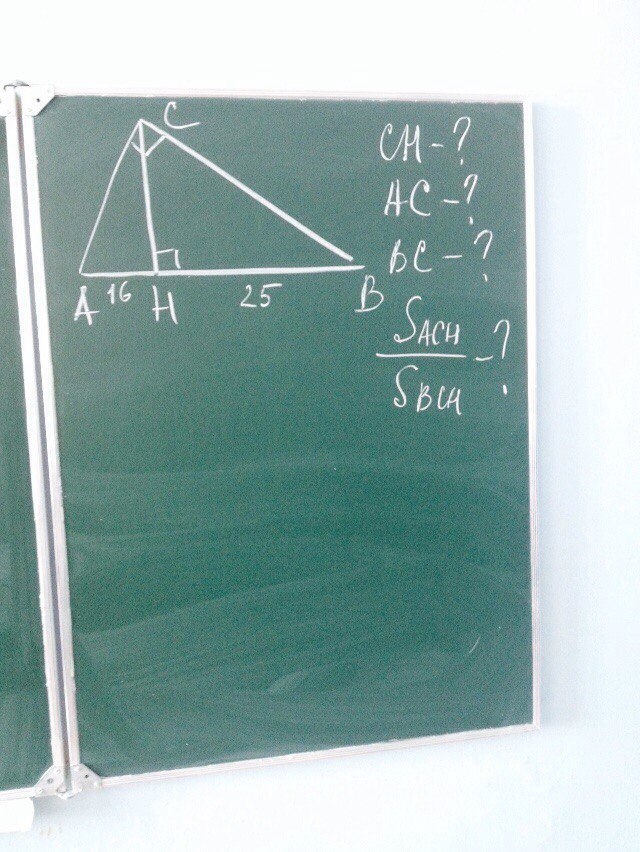 C
A 16 H 25 B
CH - ?
AC - ?
BC - ?
S_ACH / S_BCH - ?